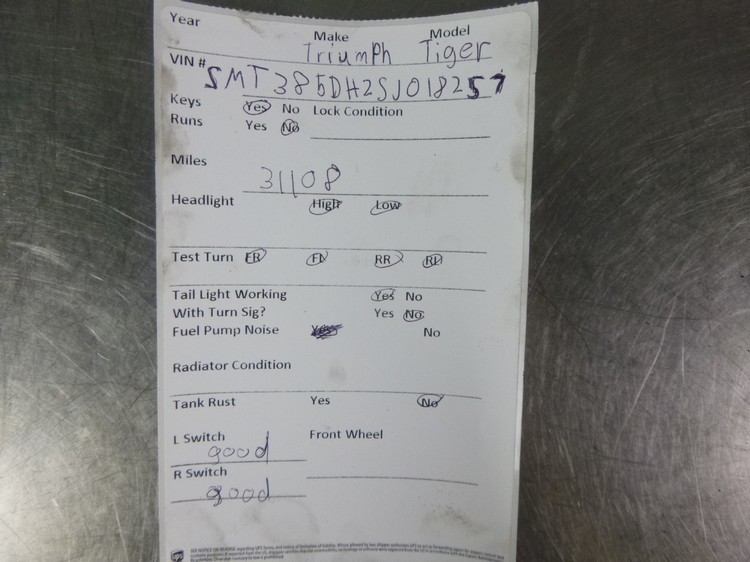 Year
Make Model
Triumph Tiger
VIN # SMT385DH2SJ018257
Keys Yes No Lock Condition
Runs Yes No
Miles
31108
Headlight High Low
Test Turn FR FL RR RL
Tail Light Working Yes No
With Turn Sig? Yes No
Fuel Pump Noise Yes No
Radiator Condition
Tank Rust Yes No
L Switch Front Wheel
good
R Switch
good